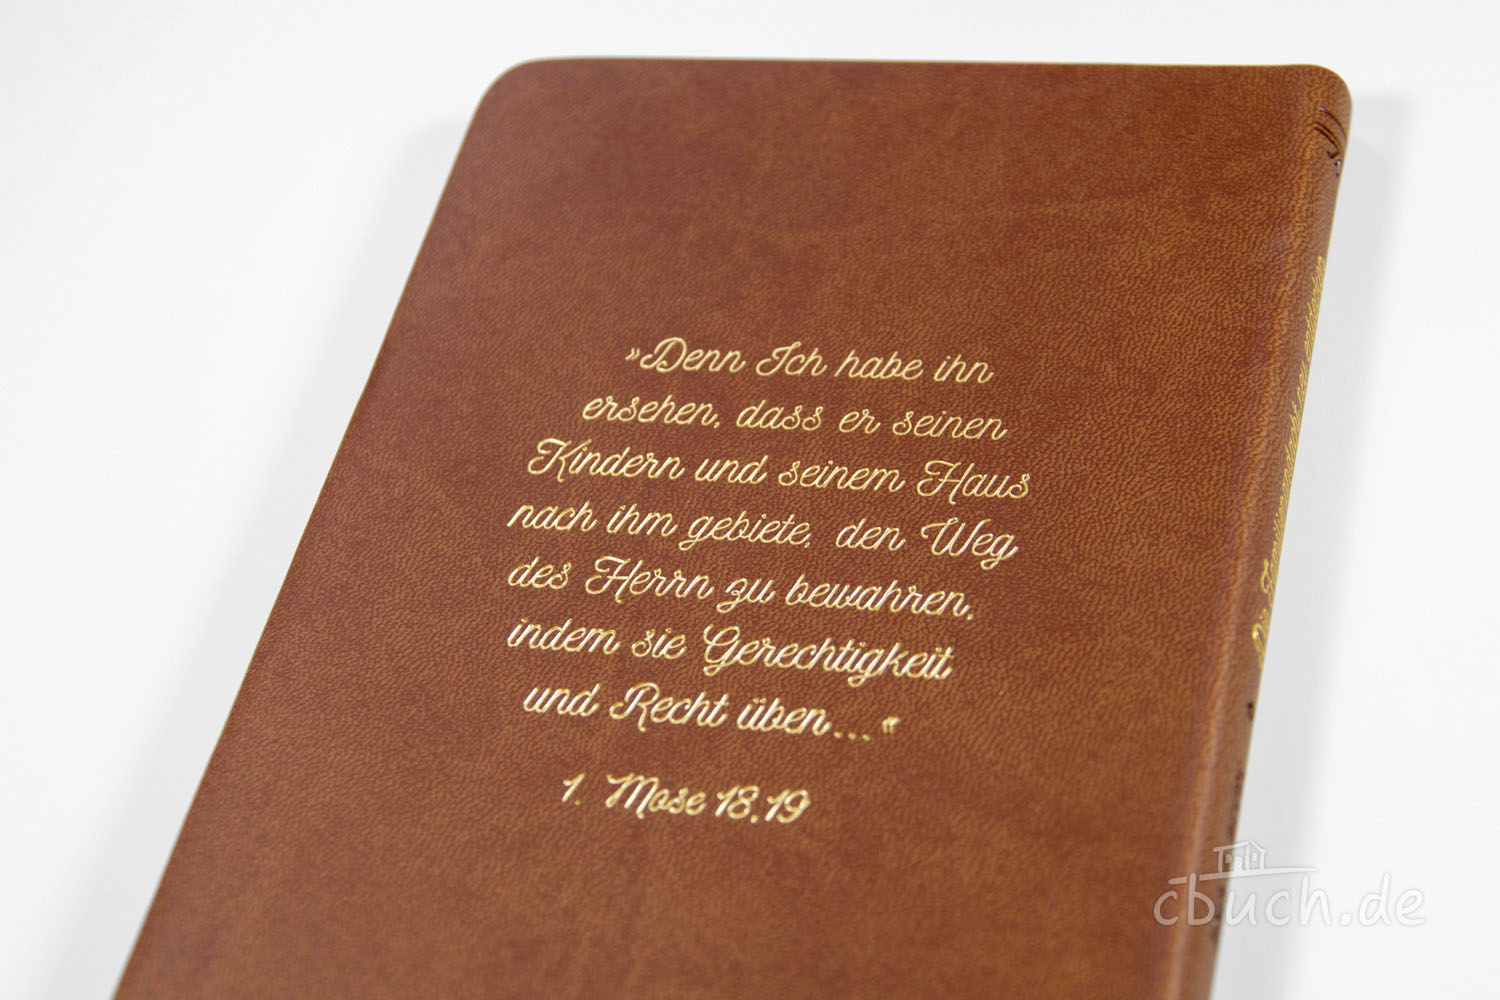 »Denn Ich habe ihn
ersehen, dass er seinen
Kindern und seinem Haus
nach ihm gebiete, den Weg
des Herrn zu bewahren,
indem sie Gerechtigkeit
und Recht üben...«
1. Mose 18,19
Die Familienandacht neu entdecken
cbuch.de